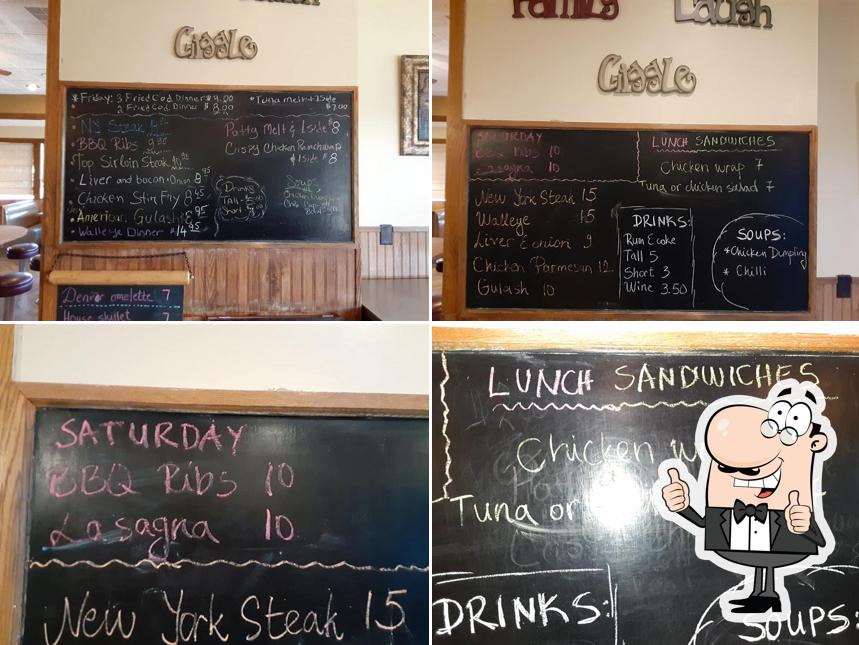 Giggle
* Friday: 3 Fried Cod Dinner $9.00
2 Fried Cod Dinner $8.00
* Tuna melt + 1 side
$7.00
NY Steak
BBQ Ribs 9.95
Top Sirloin Steak 10.95
Liver and bacon + Onion 8.95
Chicken Stir Fry 8.45
American Gulash 8.95
Walleye Dinner $14.95
Patty Melt & 1 side $8
Crispy Chicken Ranchwrap
& 1 side $8
Drinks
Tall
Short
Soups
Denver omelette 7
House skillet 7
Family
Laugh
Giggle
SATURDAY
BBQ Ribs 10
Lasagna 10
New York Steak 15
Walleye 15
Liver & onion 9
Chicken Parmesan 12
Gulash 10
LUNCH SANDWICHES
Chicken wrap 7
Tuna or chicken salad 7
DRINKS:
Rum & coke
Tall 5
Short 3
Wine 3.50
SOUPS:
* Chicken Dumpling
* Chilli
SATURDAY
BBQ Ribs 10
Lasagna 10
New York Steak 15
LUNCH SANDWICHES
Chicken w
Tuna or
DRINKS:
SOUPS: